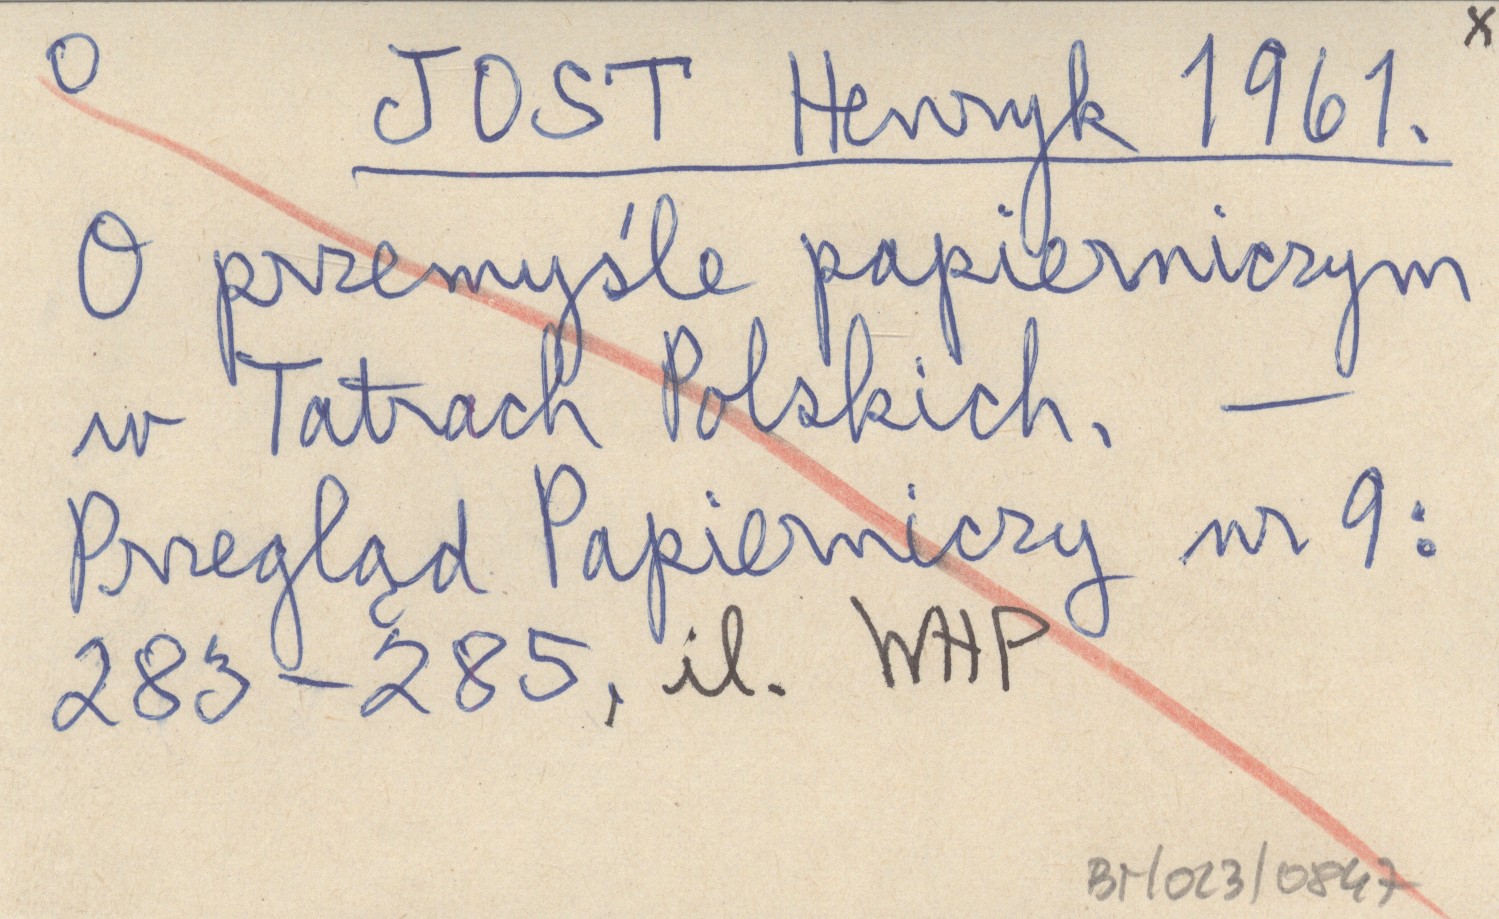 x
O JOST Henryk 1961.
O przemyśle papierniczym
w Tatrach Polskich. —
Przegląd Papierniczy nr 9:
283-285, il. WHP
BM/023/0847